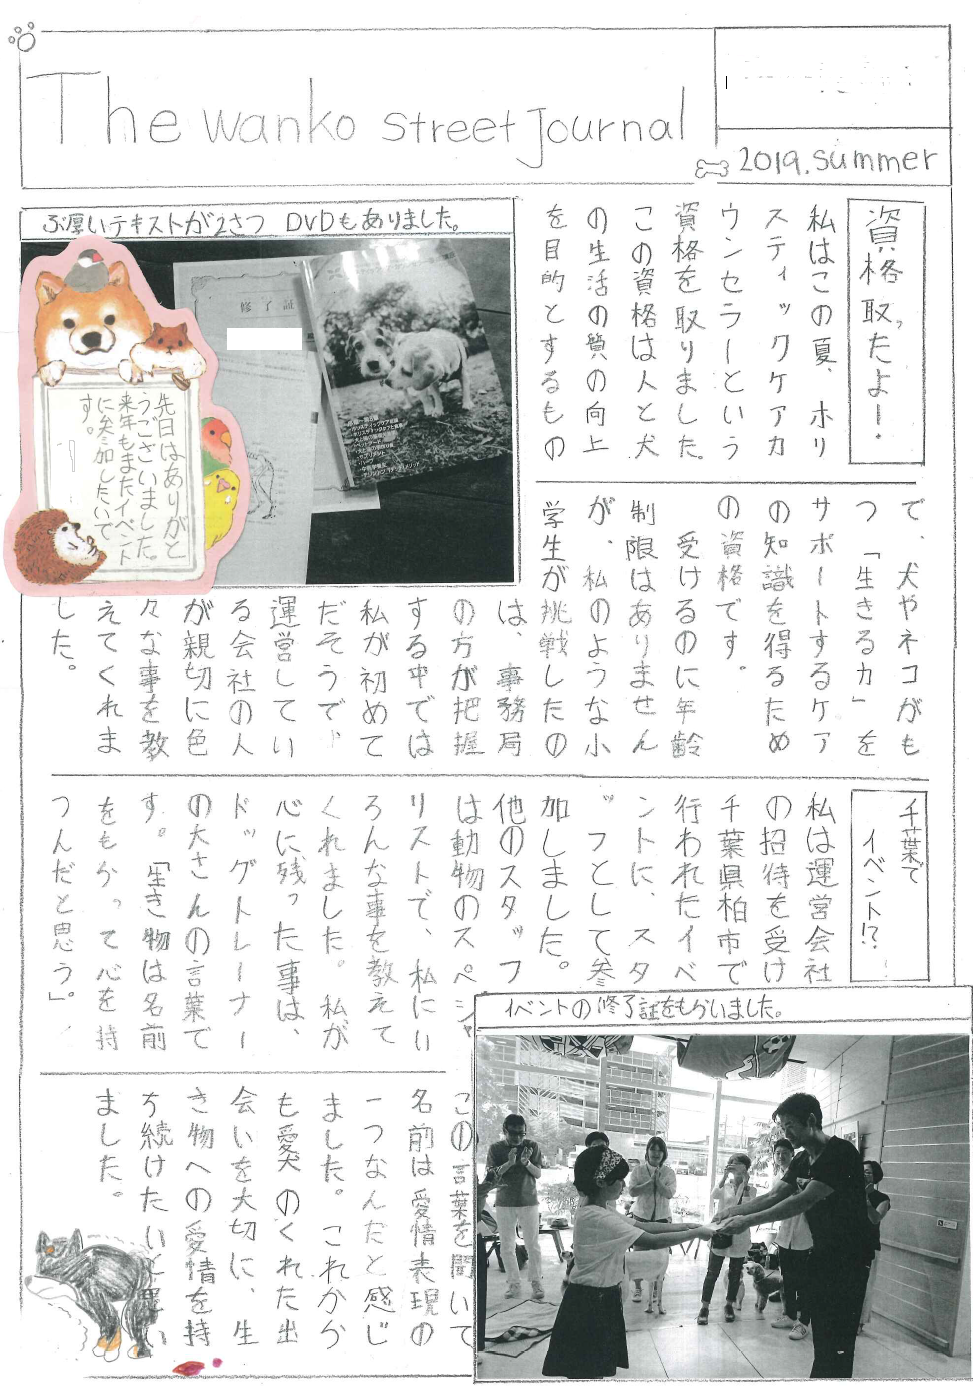 The wanko street Journal
2019.summer
資格取ったよー!
私はこの夏、ホリ
スティックケアカ
ウンセラーという
資格を取りました。
この資格は人と犬
の生活の質の向上
を目的とするもの
で、犬やネコがも
つ「生きる力」を
サポートするケア
の知識を得るため
の資格です。
受けるのに年齢
制限はありません
が、私のような小
学生が挑戦したの
は、事務局
の方が把握
する中では
私が初めて
だそうで
運営してい
る会社の人
が親切に色
々な事を教
えてくれま
した。
ぶ厚いテキストが2さつ DVDもありました。
修了証
先日はありがと
うございました。
来年もまたイベント
に参加したいで
す。
千葉で
イベント!?
私は運営会社
の招待を受け
千葉県柏市で
行われたイベ
ントに、スタ
ッフとして参
加しました。
他のスタッフ
は動物のスペシャ
リストで、私にい
ろんな事を教えて
くれました。私が
心に残った事は、
ドッグトレーナー
の大さんの言葉で
す。「生き物は名前
をもらって心を持
つんだと思う」。
この言葉を聞いて
名前は愛情表現の
一つなんだと感じ
ました。これから
も愛犬のくれた出
会いを大切に、生
き物への愛情を持
ち続けたいと思い
ました。
イベントの修了証をもらいました。